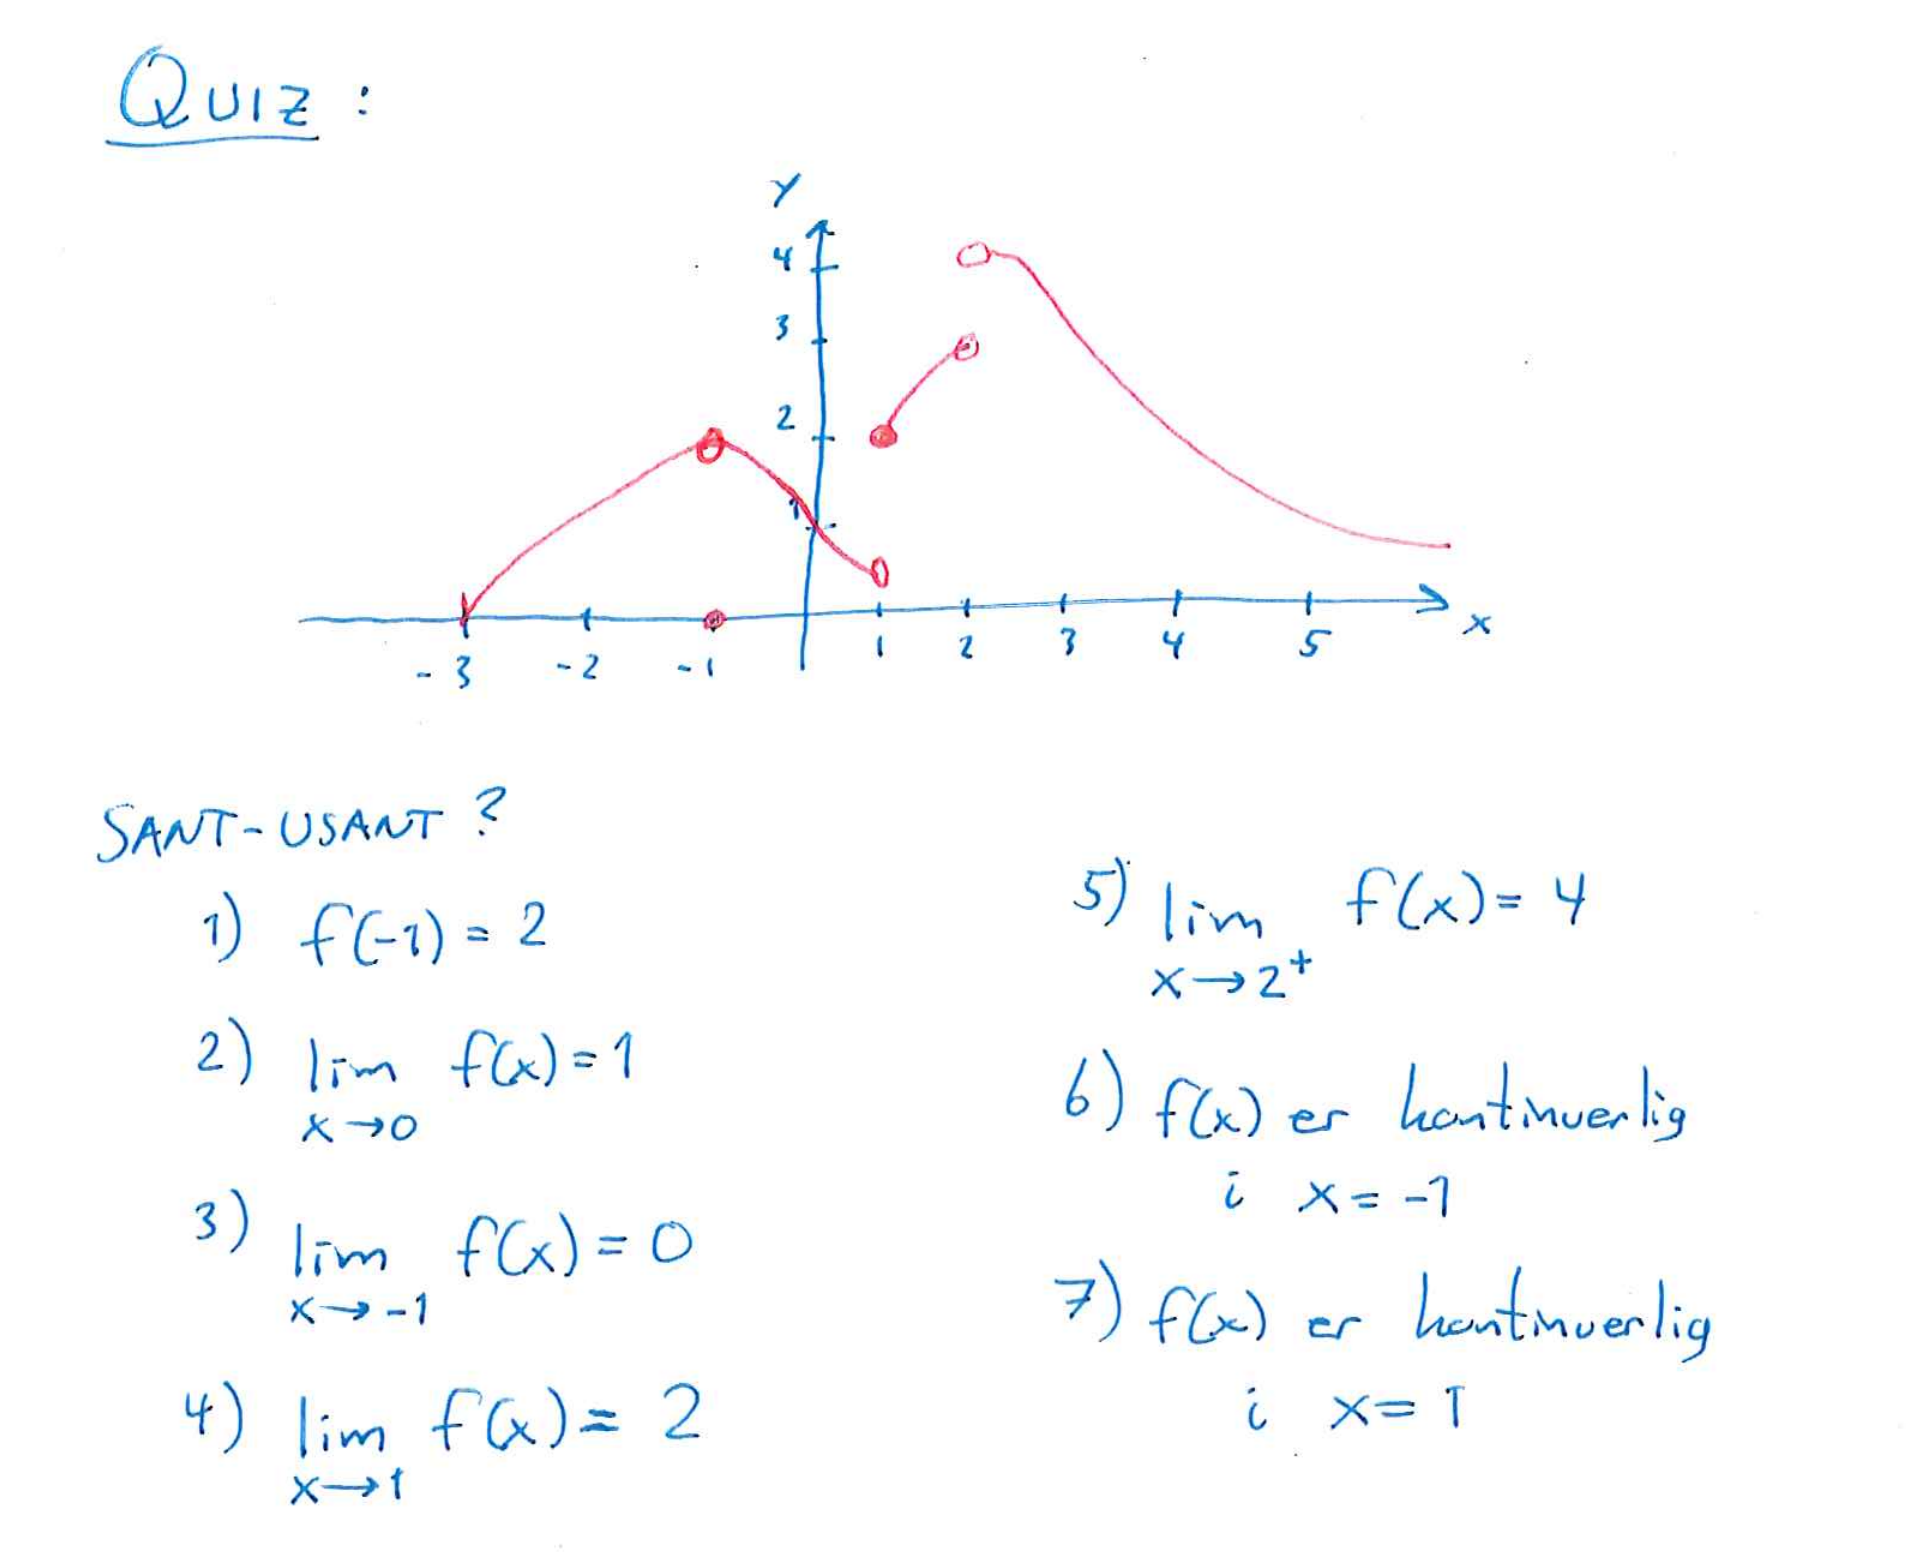 QUIZ :
Y
4
3
2
1
-3 -2 -1 1 2 3 4 5 x
SANT-USANT ?
1) f(-1) = 2
2) lim f(x) = 1
x→0
3) lim f(x) = 0
x→-1
4) lim f(x) = 2
x→1
5) lim f(x) = 4
x→2⁺
6) f(x) er kontinuerlig
i x = -1
7) f(x) er kontinuerlig
i x = 1